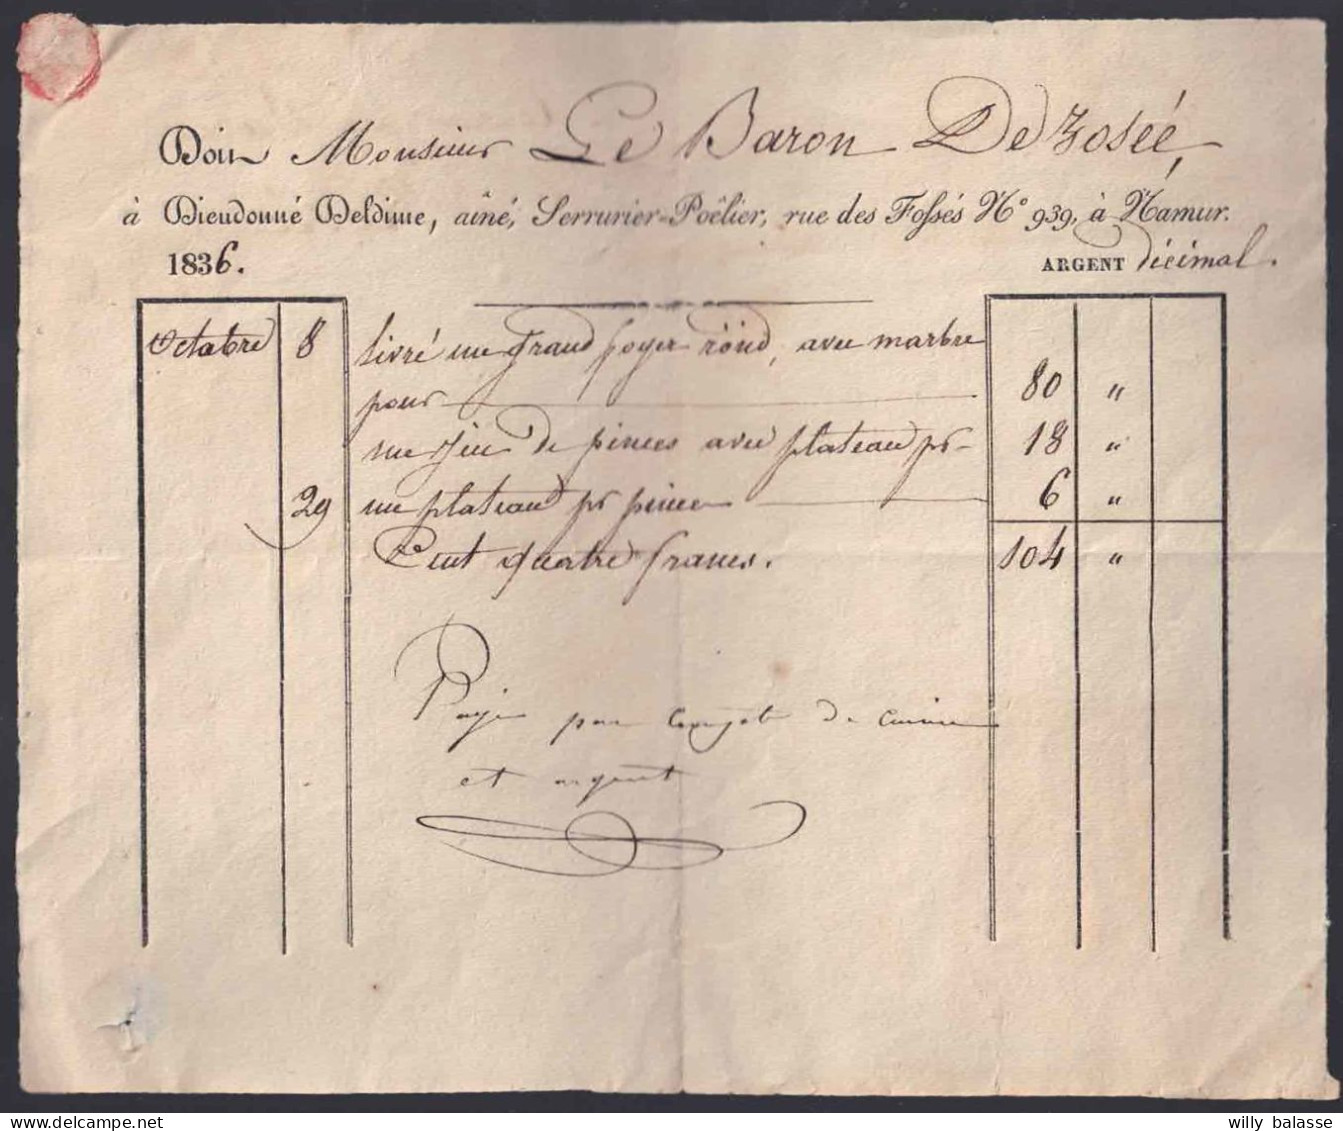 Doit Monsieur Le Baron De Zosée,
à Dieudonné Deldime, aîné, Serrurier-Poêlier, rue des Fossés N° 939, à Namur.
1836. ARGENT décimal.
Octobre 8 livré un grand foyer rond, avec marbre
pour 80 "
un jeu de pinces avec plateau pr 18 "
29 un plateau pr pince 6 "
Cent quatre francs. 104 "
Payé par compte de cuivre
et argent
willy balasse